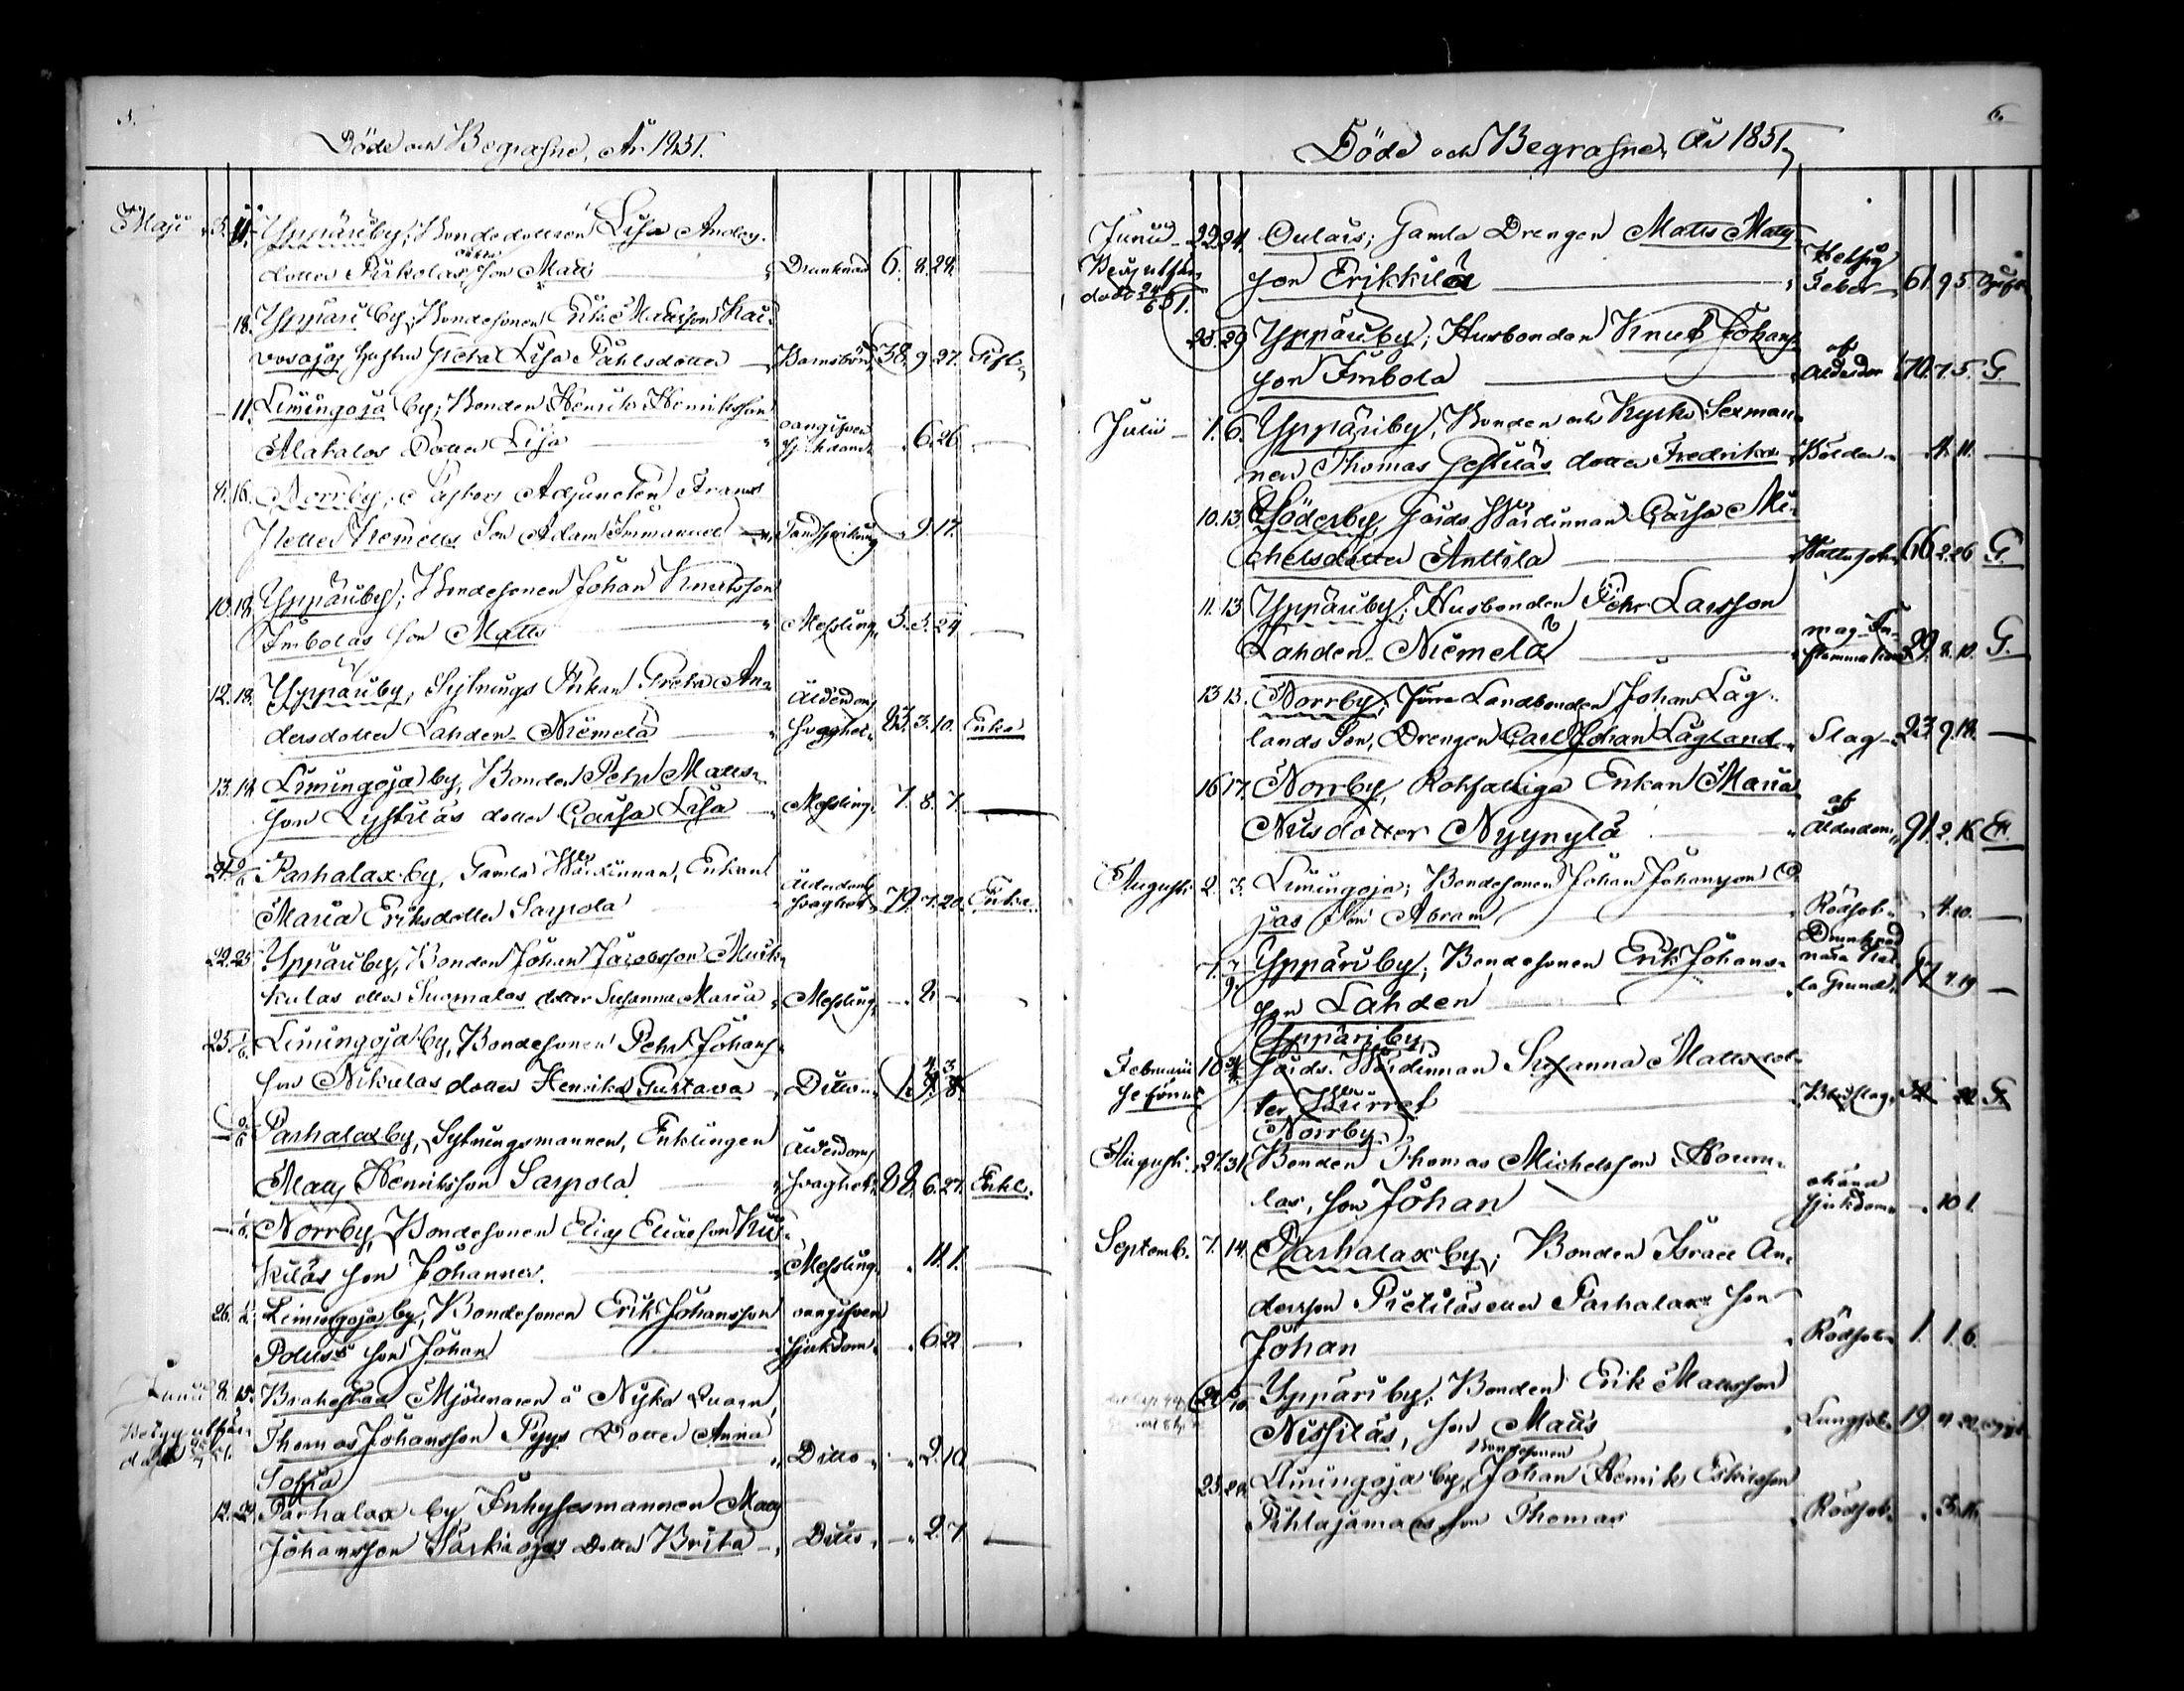 5.
Döde och Begrafne, År 1851.
Maji 5. 11. Yppäriby; Bondedottren Lisa Anders-
dotter Pirkolas, oäkta son Matts Drunknad 6. 8. 28.
18. Yppäri by; Bondesonen Erik Mattsson Kai-
vosojas hustru Greta Lisa Påhlsdotter Barnsbörd 38. 9. 27. Gift
11. Limingoja by; Bonden Henrik Henriksson
Alatalos Dotter Lisa oangifven sjukdom 6. 26.
8. 16. Norrby; Pastors Adjuncten Frans
Petter Kemells Son Adam Immanuel Tandsprickning 9. 17.
10. 18. Yppäriby; Bondesonen Johan Knutsson
Imbolas son Matts Messling 5. 5. 29
12. 18. Yppäriby; Sytnings Enkan Greta An-
dersdotter Lahden-Niemelä Ålderdoms svaghet 83. 3. 10. Enka
13. 18. Limingoja by, Bonden Pehr Matts-
son Lystiläs dotter Caisa Lisa Messling 7. 8. 7.
21. Parhalax by, Gamla Wärdinnan, Enkan
Maria Eriksdotter Sarpola Ålderdoms svaghet 79. 7. 20. Enka
22. 25. Yppäriby, Bonden Johan Jacobsson Musk-
kulas eller Suomalas dotter Susanna Maria Messling 2.
25. 1/6. Limingoja by, Bondesonen Pehr Johans-
son Nikulas dotter Henrika Gustava Ditto 1. 4. 3
Parhalax by, Sytningsmannen, Enklingen
Matts Henriksson Sarpola Ålderdoms svaghet 88. 6. 27. Enkl.
1/6. Norrby, Bondesonen Elias Eliasson Kii-
kiläs son Johannes. Messling 11. 1.
26. Limingoja by, Bondesonen Erik Johansson
Polus son Johan oangifven sjukdom 6. 22
Junii 8. 15. Brahestad Mjölnaren å Nykå Quarn,
Betyg utfär-
Thomas Johansson Pyys Dotter Anna
dadt
Sofia Ditto 2. 10
12. 22. Parhalax by Inhysesmannen Matts
Johansson Särkiojas Dotter Brita Ditto 2. 7.
6.
Döde och Begrafne, År 1851,
Junii 22. 24. Oulais; Gamla Drengen Matts Matts-
Betyg utfär-
son Erikkilä Hetsig Feber 61. 9. 5. Ogift
dadt 24/6 51.
25. 29. Yppäriby; Husbonden Knut Johans-
son Imbola af Ålderdom 70. 7. 5. G.
Julii 1. 6. Yppäriby, Bonden och Kyrko Sexman-
nen Thomas Gestiläs dotter Fredrika Bölder 4. 11.
10. 13. Söderby, Gårds Wärdinnan Caisa Mi-
chelsdotter Anttila Wattusot 66. 2. 26 G.
11. 13. Yppäriby; Husbonden Pehr Larsson
Lahden-Niemelä mag-In-flammation 29. 8. 10. G.
13 13. Norrby, Förre Landbonden Johan Låg-
lands Son, Drengen Carl Johan Lågland Slag 23. 9. 18.
16 17. Norrby, Rotfattiga Enkan Maria
Nilsdotter Nyynylä af Ålderdom 91. 2. 16. E.
Augusti 2. 3. Limingoja; Bondesonen Johan Johansson O-
jas Son Abram Rödsot 4. 10.
7. 9. Yppäriby; Bondesonen Erik Johans-
son Lahden Drunknad nära Kal-la Grund 17 7. 19
Yppäriby,
Februarii 10 Gårds-Wärdinnan Susanna Mattsdot-
se förut
ter Wiirret Blodslag G
Norrby
Augusti 27. 31. Bonden Thomas Michelsson Houru-
las, son Johan okänd sjukdom 10 1.
Septemb. 7. 14. Parhalax by; Bonden Israel An-
dersson Pietiläs eller Parhalax son
Johan Rödsot 1. 1. 6.
21 Yppäriby, Bonden Erik Mattsson
Nissiläs, son Matts Lungsot 19. ogift
25. 28. Limingoja by, Bondesonen Johan Henrik Eskilsson
Pihlajamaas son Thomas Rödsot 3. 16.